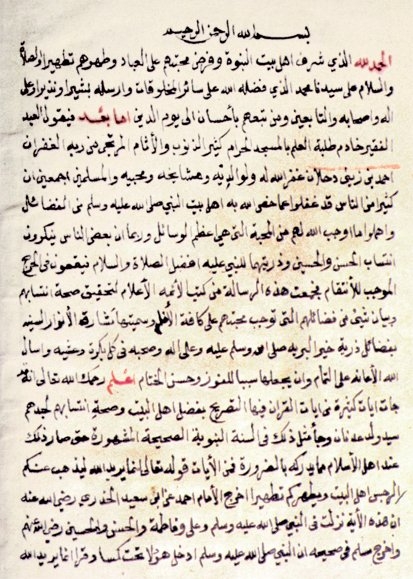 بسم الله الرحمن الرحيم
الحمد لله الذي شرف اهل بيت النبوة وفرض محبتهم على العباد وطهرهم تطهيرا والصلاة
والسلام على سيدنا محمد الذي فضله الله على سائر المخلوقات وارسله بشيرا ونذيرا وعلى
اله واصحابه والتابعين ومن تبعهم باحسان الى يوم الدين اما بعد فيقول العبد
الفقير خادم طلبة العلم بالمسجد الحرام كثير الذنوب والآثام المرتجى من ربه الغفران
احمد بن زيني دحلان غفر الله له ولوالديه ومشايخه ومحبيه والمسلمين اجمعين ان
كثيرا من الناس قد غفلوا عما خص الله به اهل بيت النبي صلى الله عليه وسلم من الفضائل
واهملوا ما اوجب الله لهم من المحبة التي هي اعظم الوسائل وربما ان بعض الناس ينكرون
انتساب الحسن والحسين وذريتهما للنبي عليه افضل الصلاة والسلام فيقعون في الحرج
الموجب للانتقام فجمعت هذه الرسالة من كتب الائمة الاعلام لتحقيق صحة انتسابهم
وبيان شئ من فضائلهم التي توجب محبتهم على كافة الانام وسميتها مشارقة الانوار السنية
بفضائل ذرية خير البرية صلى الله عليه وسلم وعلى اله وصحبه في كل بكرة وعشية واسال
الله الاعانة على التمام وان يجعلها سببا للفوز وحسن الختام اعلم رحمك الله تعالى انه
جات ايات كثيرة من ايات القران فيها التصريح بفضل اهل البيت وصحة انتسابهم لجدهم
سيد ولد عدنان وجا مثل ذلك في السنة النبوية الصحيحة المشهورة حتى صار ذلك
عند اهل الاسلام مما يدركه بالضرورة فمن الآيات قوله تعالى انما يريد الله ليذهب عنكم
الرجس اهل البيت ويطهركم تطهيرا اخرج الامام احمد عن ابي سعيد الخدري رضي الله عنه
ان هذه الآية نزلت في النبي صلى الله عليه وسلم وعلي وفاطمة والحسن والحسين رضي الله عنهم
واخرج مسلم في صحيحه ان النبي صلى الله عليه وسلم ادخل هؤلا تحت كسا وقرا انما يريد الله